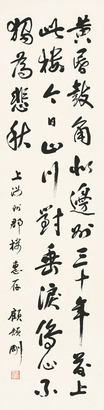 黃昏鼓角似邊州三十年前上
此樓今日山川對垂淚傷心不
獨為悲秋
上汝州郡樓 惠存 顧頡剛